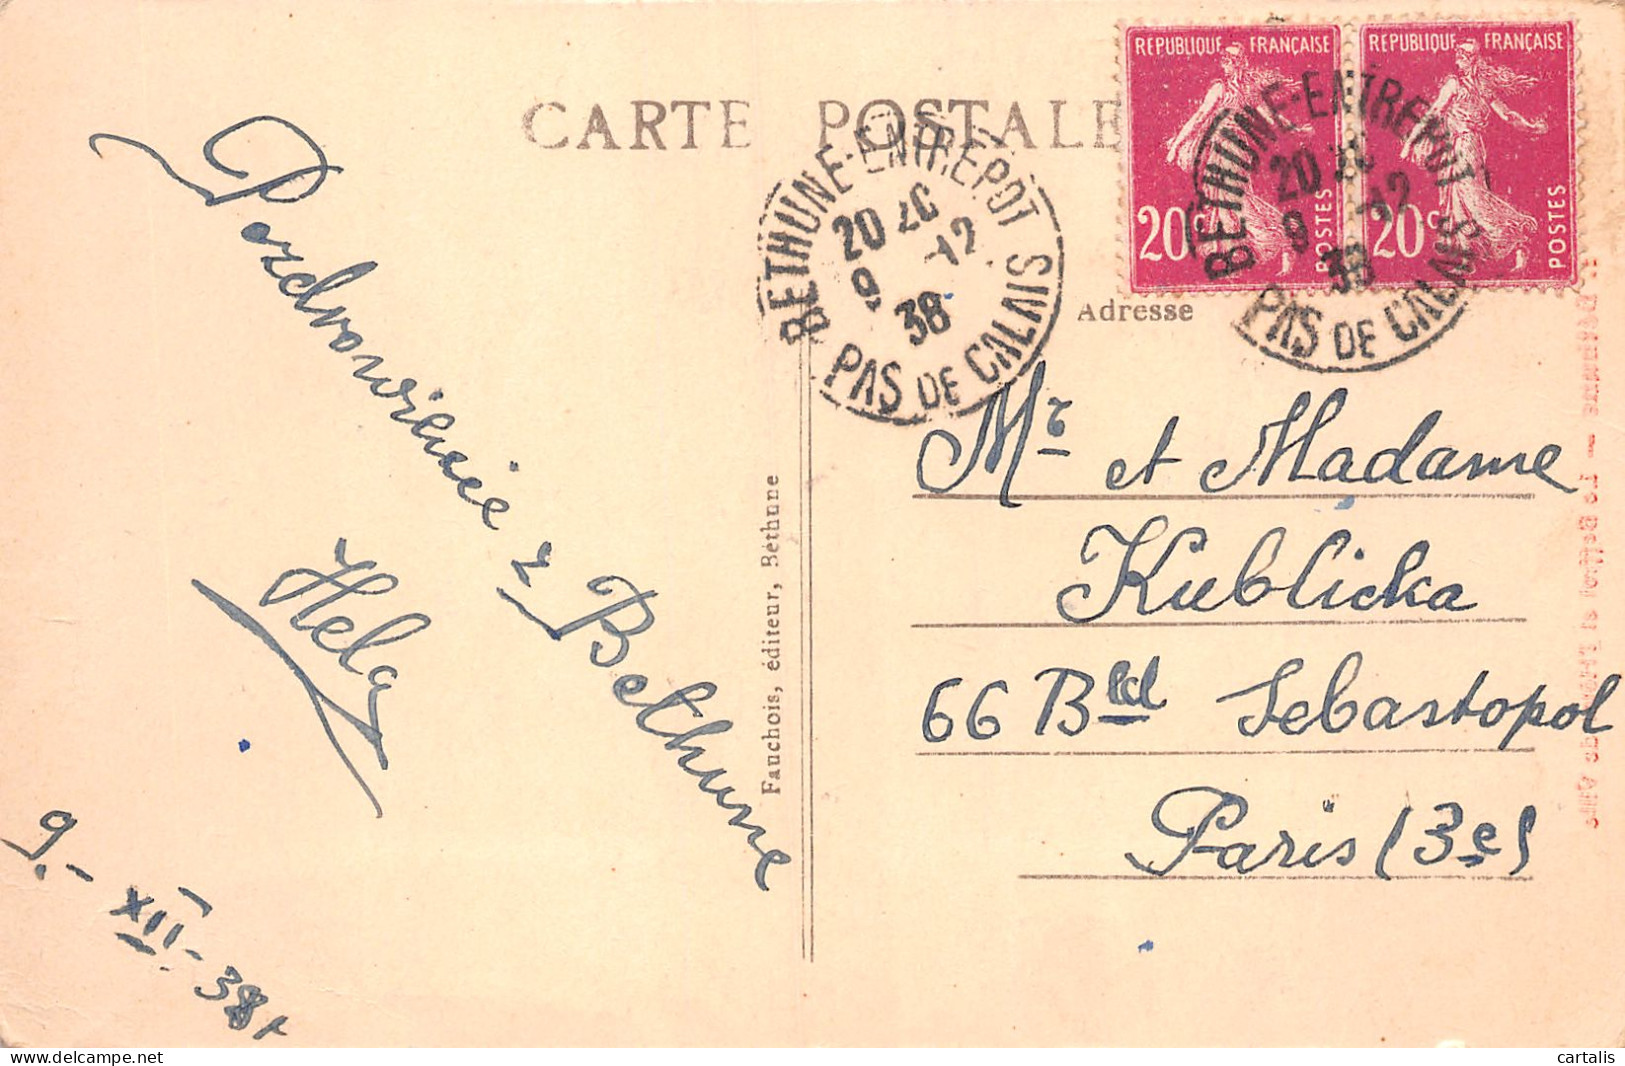 CARTE POSTALE
REPUBLIQUE FRANÇAISE
20c POSTES
REPUBLIQUE FRANÇAISE
20c POSTES
BETHUNE-ENTREPOT
20 12
9 38
PAS DE CALAIS
BETHUNE-ENTREPOT
20 12
9 38
PAS DE CALAIS
Adresse
Pozdrowienie z Bethune
Hela
9.- XII - 38r
Fauchois, éditeur, Béthune
Mr et Madame
Kublicka
66 Bld Sebastopol
Paris (3e)
cartalis